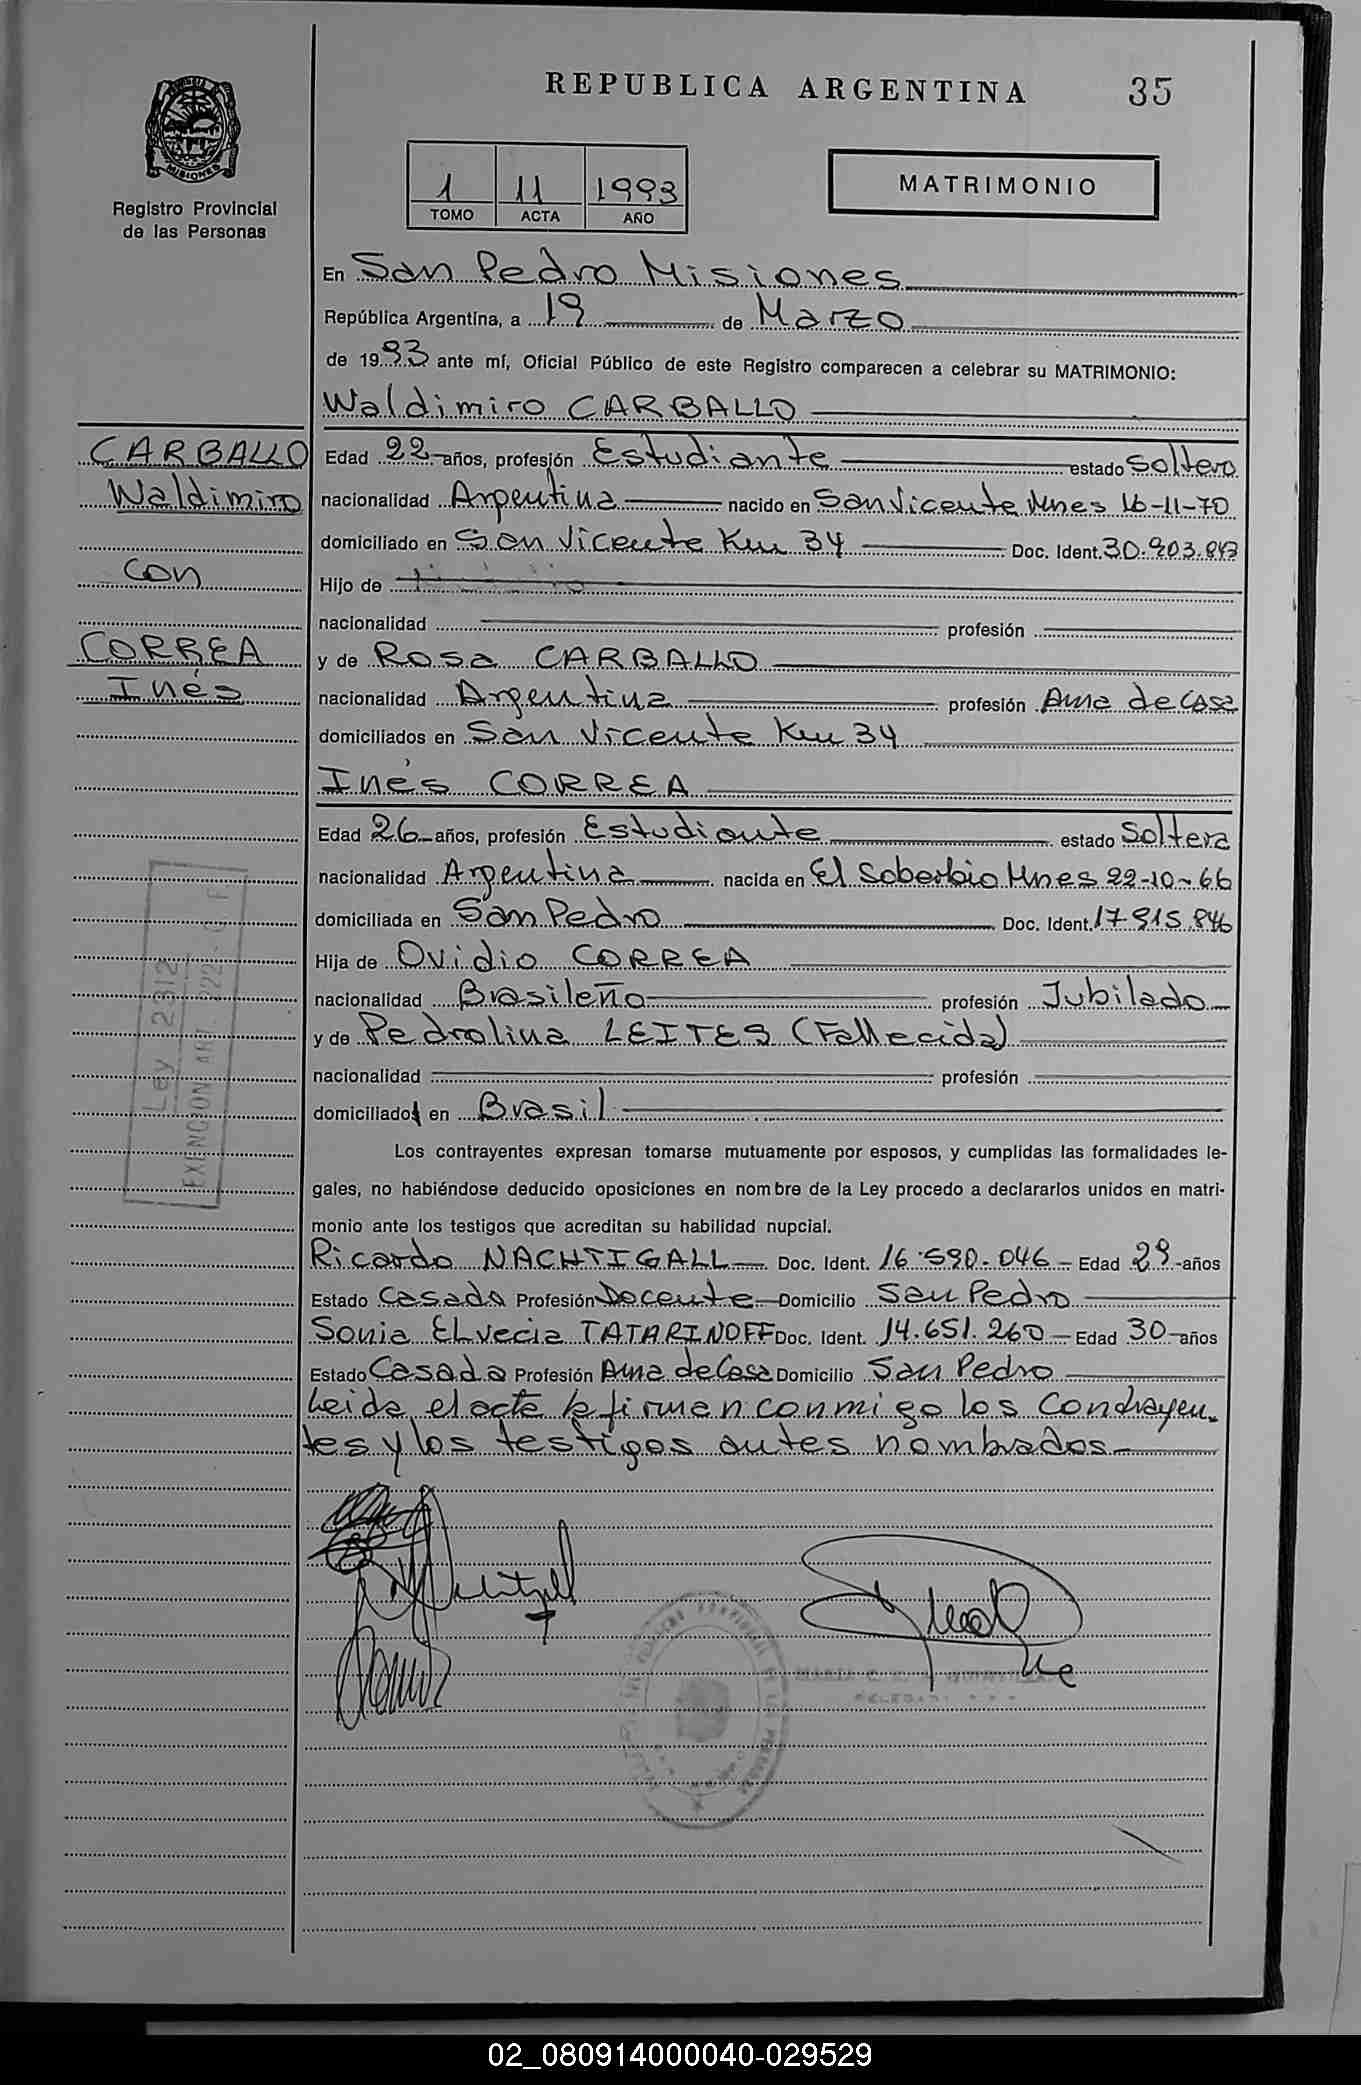 REPUBLICA ARGENTINA 35
MISIONES
Registro Provincial
de las Personas
1 11 1993
TOMO ACTA AÑO
MATRIMONIO
En San Pedro Misiones
República Argentina, a 19 de Marzo
de 1993 ante mí, Oficial Público de este Registro comparecen a celebrar su MATRIMONIO:
Waldimiro CARBALLO
CARBALLO
Waldimiro
con
CORREA
Inés
Edad 22 años, profesión Estudiante estado Soltero
nacionalidad Argentina nacido en San Vicente Mnes 16-11-70
domiciliado en San Vicente Km 34 Doc. Ident. 30.903.843
Hijo de
nacionalidad profesión
y de Rosa CARBALLO
nacionalidad Argentina profesión Ama de Casa
domiciliados en San Vicente Km 34
Inés CORREA
Edad 26 años, profesión Estudiante estado Soltera
nacionalidad Argentina nacida en El Soberbio Mnes 22-10-66
domiciliada en San Pedro Doc. Ident. 17.915.846
Hija de Ovidio CORREA
nacionalidad Brasileño profesión Jubilado
y de Pedrolina LEITES (Fallecida)
nacionalidad profesión
domiciliado en Brasil
Ley 2312
EXENCION ART. 222
Los contrayentes expresan tomarse mutuamente por esposos, y cumplidas las formalidades le-
gales, no habiéndose deducido oposiciones en nombre de la Ley procedo a declararlos unidos en matri-
monio ante los testigos que acreditan su habilidad nupcial.
Ricardo NACHTIGALL Doc. Ident. 16.590.046 Edad 29 años
Estado Casado Profesión Docente Domicilio San Pedro
Sonia ELvecia TATARINOFF Doc. Ident. 14.651.260 Edad 30 años
Estado Casada Profesión Ama de Casa Domicilio San Pedro
Leida el acta la firman conmigo los Contrayen-
tes y los testigos antes nombrados
02_080914000040-029529